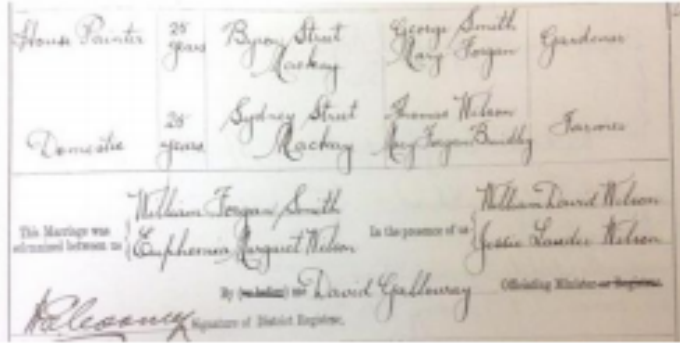 House Painter 25 years Byron Street Mackay George Smith Mary Forgan Gardener
Domestic 25 years Sydney Street Mackay Thomas Wilson Mary Forgan Farmer
This Marriage was solemnised between us William Forgan Smith Euphemia Margaret Wilson In the presence of us William David Wilson Jessie Lauder Wilson
By me David Galloway Officiating Minister or Registrar.
Signature of District Registrar.